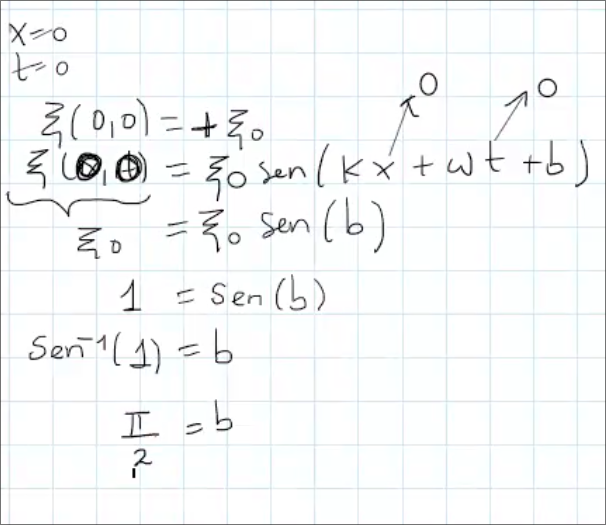 x=0
t=0
0 0
ξ(0,0)=+ξ₀
ξ(0,0) = ξ₀ sen(kx+ωt+b)
ξ₀ = ξ₀ sen(b)
1 = sen(b)
sen⁻¹(1) = b
π/2 = b